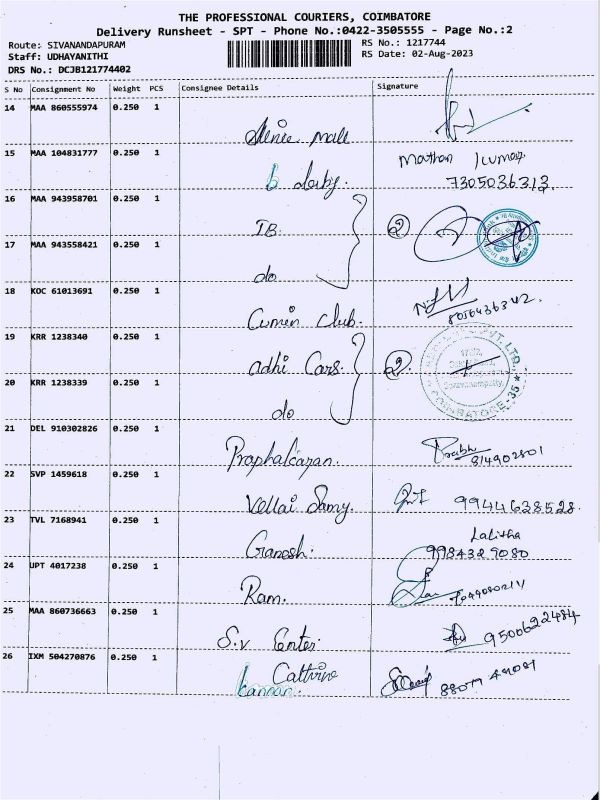 THE PROFESSIONAL COURIERS, COIMBATORE
Delivery Runsheet - SPT - Phone No.:0422-3505555 - Page No.:2
Route: SIVANANDAPURAM
Staff: UDHAYANITHI
DRS No.: DCJB121774402
RS No.: 1217744
RS Date: 02-Aug-2023
S No Consignment No Weight PCS Consignee Details Signature
14 MAA 860555974 0.250 1
15 MAA 104831777 0.250 1 Mathan Kumar
7305036313
16 MAA 943958701 0.250 1
IB. 2
17 MAA 943558421 0.250 1
do
18 KOC 61013691 0.250 1
Cumin Club.
19 KRR 1238340 0.250 1
Adhi Cars. 2
PVT. LTD.
COIMBATORE-35
20 KRR 1238339 0.250 1
do
21 DEL 910302826 0.250 1
Prabhakaran. Prabh
814902801
22 SVP 1459618 0.250 1
Vellai Samy. 9944638528.
23 TVL 7168941 0.250 1 Lalitha
Ganesh. 9984329080
24 UPT 4017238 0.250 1
Ram.
25 MAA 860736663 0.250 1
S.V Enter. 9500622484
26 IXM 504270876 0.250 1
kannan.